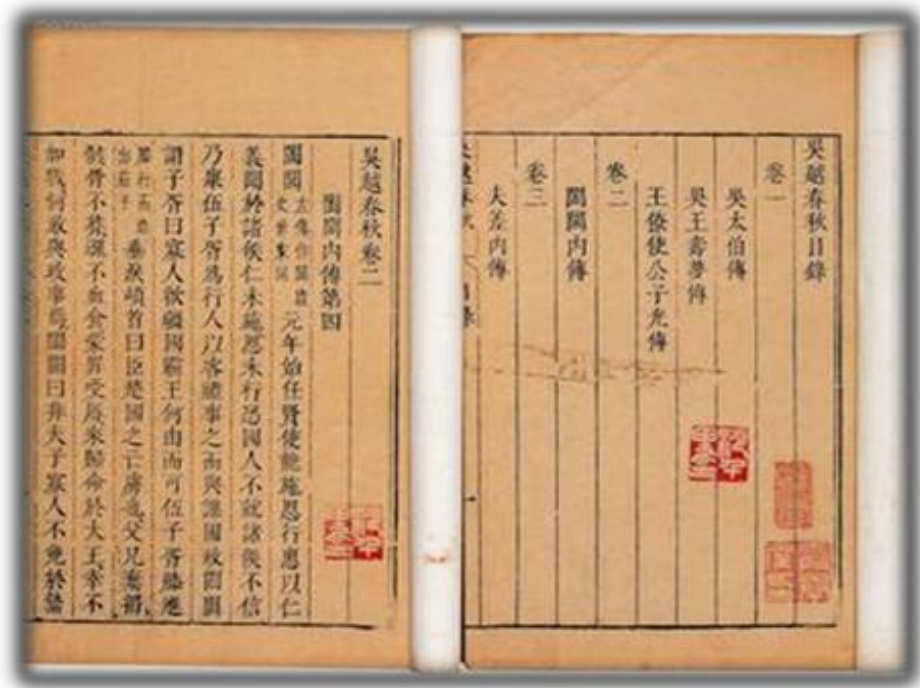 吳越春秋目錄
卷一
吳太伯傳
吳王壽夢傳
王僚使公子光傳
卷二
闔閭內傳
卷三
夫差內傳
吳越春秋卷二
闔閭內傳第四
闔閭 元年始任賢使能施恩行惠以仁
義聞於諸侯仁未施恩未行恐國人不就諸侯不信
乃舉伍子胥爲行人以客禮事之而與謀國政闔閭
謂子胥曰寡人欲彊國霸王何由而可伍子胥膝進
垂淚頓首曰臣楚國之亡虜也父兄棄捐
骸骨不葬魂不血食蒙罪受辱來歸命於大王幸不
加戮何敢與政事焉闔閭曰非夫子寡人不免於縶